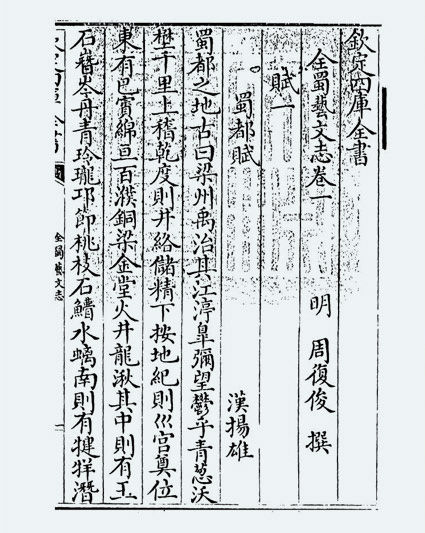 欽定四庫全書
全蜀藝文志卷一 明 周復俊 撰
賦一
蜀都賦 漢揚雄
蜀都之地古曰梁州禹治其江渟臯彌望鬱乎青葱沃
埜千里上稽乾度則井絡儲精下按地紀則巛宫奠位
東有巴賨綿亘百濮銅梁金堂火井龍湫其中則有玉
石嶜岑丹青玲瓏邛節桃枝石䲡水螭南則有犍牂潛
全蜀藝文志
一